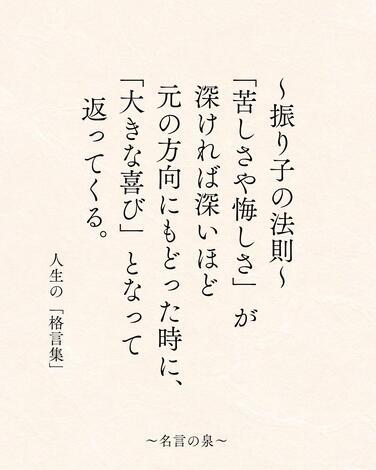 〜振り子の法則〜
「苦しさや悔しさ」が
深ければ深いほど
元の方向にもどった時に、
「大きな喜び」となって
返ってくる。
人生の「格言集」
〜名言の泉〜